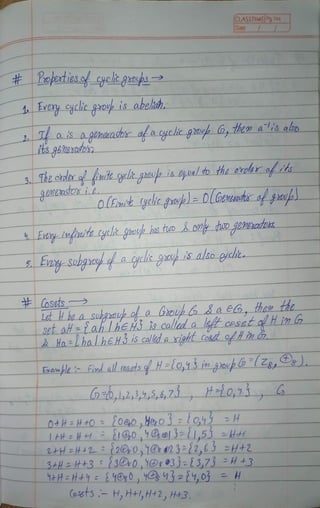 CLASSTIME Pg. No.
Date / /
# Properties of cyclic groups →
1. Every cyclic group is abelian.
2. If a is a generator of a cyclic group G, then a⁻¹ is also
its generator.
3. The order of finite cyclic group is equal to the order of its
generator i.e.
O(Finite cyclic group) = O(Generator of group)
4. Every infinite cyclic group has two & only two generators
5. Every subgroup of a cyclic group is also cyclic.
# Cosets →
Let H be a subgroup of a Group G & a ∈ G, then the
set aH = {ah | h ∈ H} is called a left coset of H in G
& Ha = {ha | h ∈ H} is called a right coset of H in G.
Example :- Find all cosets of H = {0,4} in group G = (Z₈, ⊕₈).
G = {0,1,2,3,4,5,6,7} , H = {0,4} , G
0+H = H+0 = {0⊕₈0, 4⊕₈0} = {0,4} = H
1+H = H+1 = {1⊕₈0, 4⊕₈1} = {1,5} = H+1
2+H = H+2 = {2⊕₈0, 4⊕₈2} = {2,6} = H+2
3+H = H+3 = {3⊕₈0, 4⊕₈3} = {3,7} = H+3
4+H = H+4 = {4⊕₈0, 4⊕₈4} = {4,0} = H
Cosets :- H, H+1, H+2, H+3.